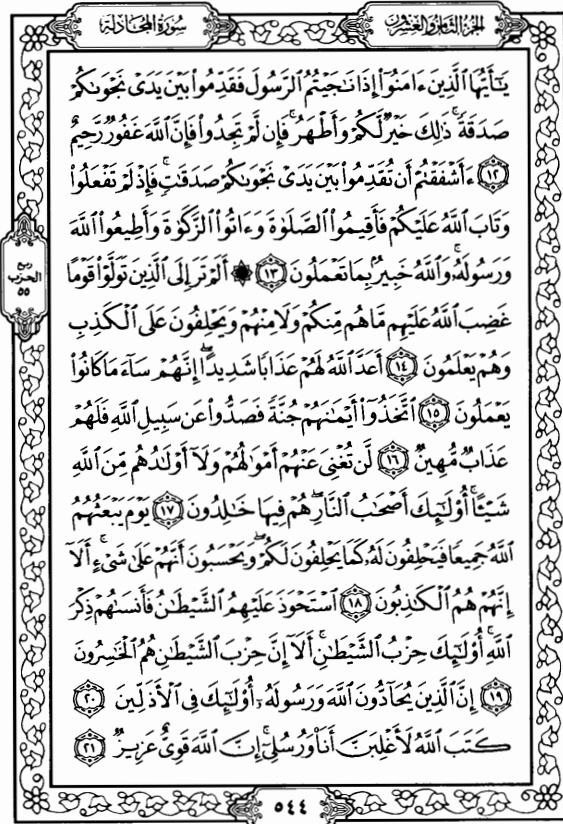 الجزء الثامن والعشرون
سورة المجادلة
يَـٰٓأَيُّهَا ٱلَّذِينَ ءَامَنُوٓا۟ إِذَا نَـٰجَيْتُمُ ٱلرَّسُولَ فَقَدِّمُوا۟ بَيْنَ يَدَىْ نَجْوَىٰكُمْ
صَدَقَةً ۚ ذَٰلِكَ خَيْرٌ لَّكُمْ وَأَطْهَرُ ۚ فَإِن لَّمْ تَجِدُوا۟ فَإِنَّ ٱللَّهَ غَفُورٌ رَّحِيمٌ
١٢ ءَأَشْفَقْتُمْ أَن تُقَدِّمُوا۟ بَيْنَ يَدَىْ نَجْوَىٰكُمْ صَدَقَـٰتٍ ۚ فَإِذْ لَمْ تَفْعَلُوا۟
وَتَابَ ٱللَّهُ عَلَيْكُمْ فَأَقِيمُوا۟ ٱلصَّلَوٰةَ وَءَاتُوا۟ ٱلزَّكَوٰةَ وَأَطِيعُوا۟ ٱللَّهَ
وَرَسُولَهُۥ ۚ وَٱللَّهُ خَبِيرٌۢ بِمَا تَعْمَلُونَ ١٣ ۞ أَلَمْ تَرَ إِلَى ٱلَّذِينَ تَوَلَّوْا۟ قَوْمًا
ربع
الحزب
٥٥
غَضِبَ ٱللَّهُ عَلَيْهِم مَّا هُم مِّنكُمْ وَلَا مِنْهُمْ وَيَحْلِفُونَ عَلَى ٱلْكَذِبِ
وَهُمْ يَعْلَمُونَ ١٤ أَعَدَّ ٱللَّهُ لَهُمْ عَذَابًا شَدِيدًا ۖ إِنَّهُمْ سَآءَ مَا كَانُوا۟
يَعْمَلُونَ ١٥ ٱتَّخَذُوٓا۟ أَيْمَـٰنَهُمْ جُنَّةً فَصَدُّوا۟ عَن سَبِيلِ ٱللَّهِ فَلَهُمْ
عَذَابٌ مُّهِينٌ ١٦ لَّن تُغْنِىَ عَنْهُمْ أَمْوَٰلُهُمْ وَلَآ أَوْلَـٰدُهُم مِّنَ ٱللَّهِ
شَيْـًٔا ۚ أُو۟لَـٰٓئِكَ أَصْحَـٰبُ ٱلنَّارِ ۖ هُمْ فِيهَا خَـٰلِدُونَ ١٧ يَوْمَ يَبْعَثُهُمُ
ٱللَّهُ جَمِيعًا فَيَحْلِفُونَ لَهُۥ كَمَا يَحْلِفُونَ لَكُمْ ۖ وَيَحْسَبُونَ أَنَّهُمْ عَلَىٰ شَىْءٍ ۚ أَلَآ
إِنَّهُمْ هُمُ ٱلْكَـٰذِبُونَ ١٨ ٱسْتَحْوَذَ عَلَيْهِمُ ٱلشَّيْطَـٰنُ فَأَنسَىٰهُمْ ذِكْرَ
ٱللَّهِ ۚ أُو۟لَـٰٓئِكَ حِزْبُ ٱلشَّيْطَـٰنِ ۚ أَلَآ إِنَّ حِزْبَ ٱلشَّيْطَـٰنِ هُمُ ٱلْخَـٰسِرُونَ
١٩ إِنَّ ٱلَّذِينَ يُحَآدُّونَ ٱللَّهَ وَرَسُولَهُۥٓ أُو۟لَـٰٓئِكَ فِى ٱلْأَذَلِّينَ ٢٠
كَتَبَ ٱللَّهُ لَأَغْلِبَنَّ أَنَا۠ وَرُسُلِىٓ ۚ إِنَّ ٱللَّهَ قَوِىٌّ عَزِيزٌ ٢١
٥٤٤